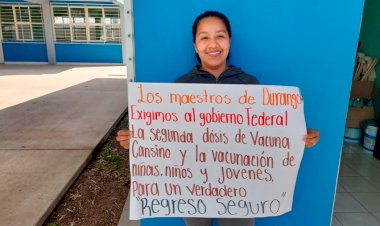 Los maestros de Durango
Exigimos al gobierno Federal
La segunda dósis de Vacuna
Cansino y la vacunación de
niñas, niños y jovenes.
Para un verdadero
"Regreso Seguro"